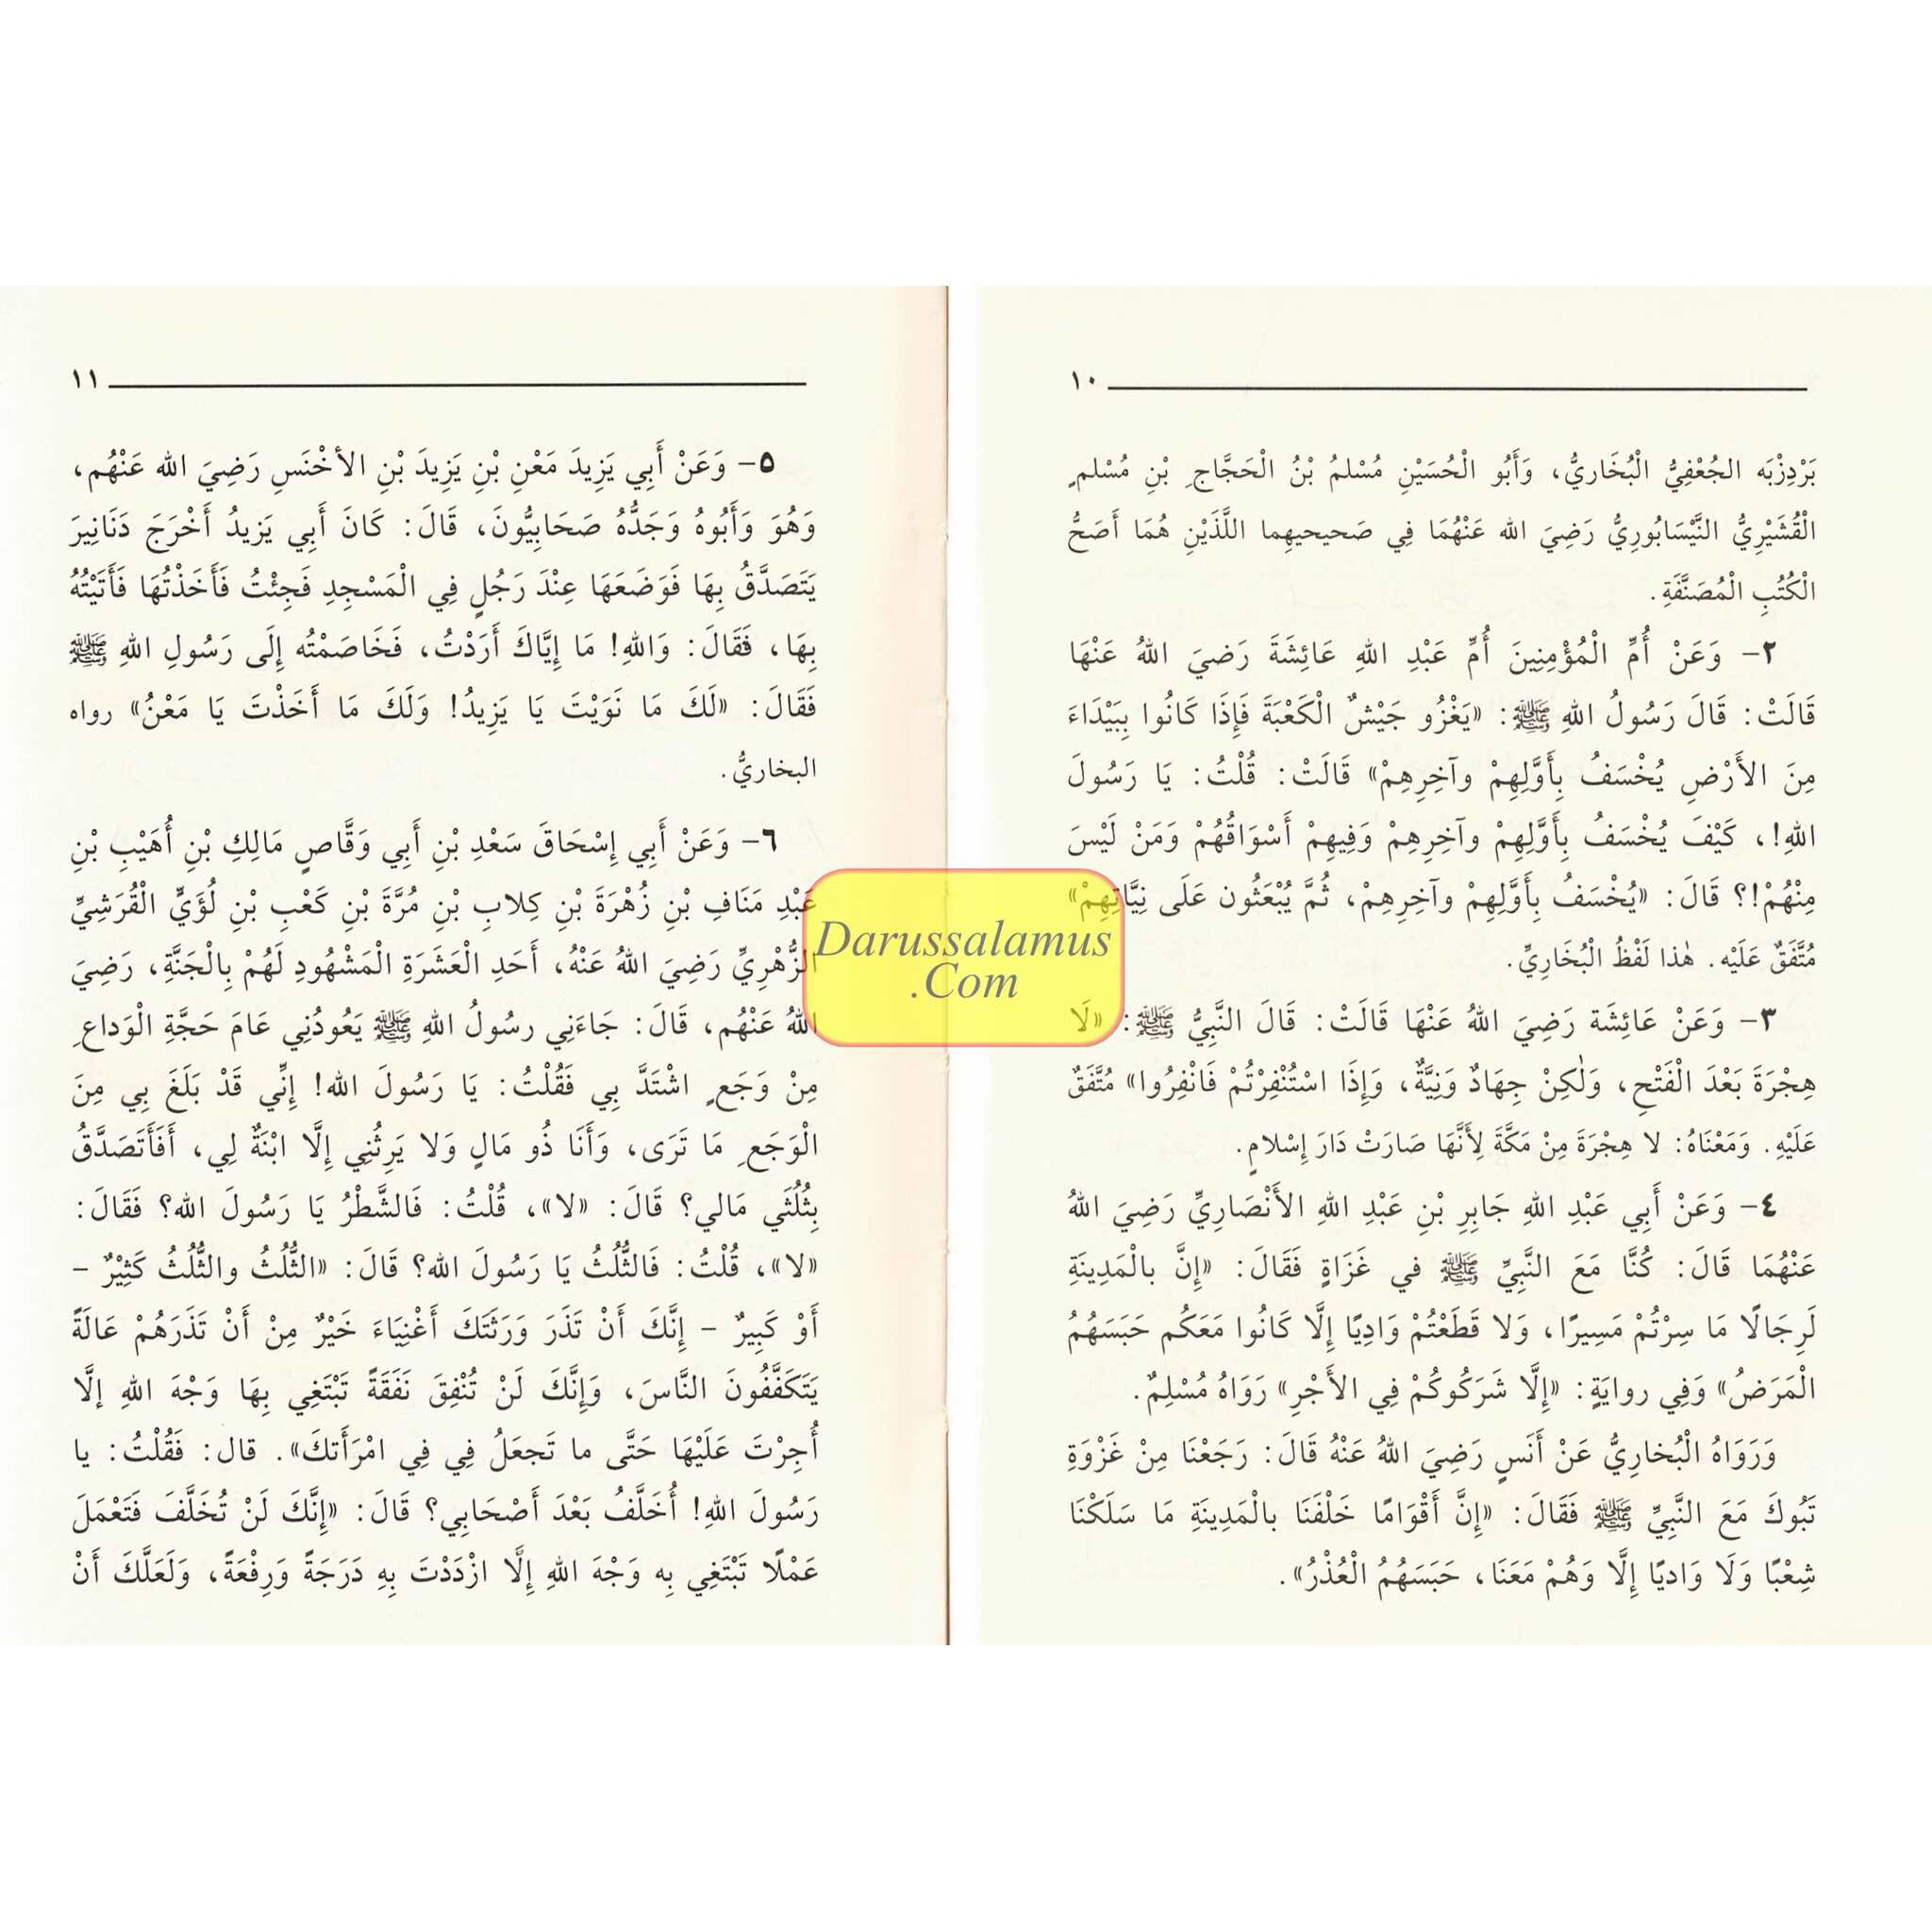 ١٠
بَرْدِزْبَه الجُعْفِيُّ الْبُخَارِيُّ، وَأَبُو الْحُسَيْنِ مُسْلمُ بْنُ الْحَجَّاجِ بْنِ مُسْلمٍ
الْقُشَيْرِيُّ النَّيْسَابُورِيُّ رَضِيَ الله عَنْهُمَا فِي صَحيحيهِما اللَّذَيْنِ هُمَا أَصَحُّ
الْكُتُبِ الْمُصَنَّفَةِ.
٢- وَعَنْ أُمِّ الْمُؤْمِنِينَ أُمِّ عَبْدِ اللهِ عَائِشَةَ رَضيَ اللهُ عَنْهَا
قَالَتْ: قَالَ رَسُولُ اللهِ ﷺ: «يَغْزُو جَيْشٌ الْكَعْبَةَ فَإِذَا كَانُوا بِبَيْدَاءَ
مِنَ الأَرْضِ يُخْسَفُ بِأَوَّلِهِمْ وآخِرِهِمْ» قَالَتْ: قُلْتُ: يَا رَسُولَ
اللهِ!، كَيْفَ يُخْسَفُ بِأَوَّلِهِمْ وآخِرِهِمْ وَفِيهِمْ أَسْوَاقُهُمْ وَمَنْ لَيْسَ
مِنْهُمْ!؟ قَالَ: «يُخْسَفُ بِأَوَّلِهِمْ وآخِرِهِمْ، ثُمَّ يُبْعَثُون عَلَى نِيَّاتِهِمْ»
مُتَّفَقٌ عَلَيْه. هٰذا لَفْظُ الْبُخَارِيِّ.
٣- وَعَنْ عَائِشَة رَضِيَ اللهُ عَنْهَا قَالَتْ: قَالَ النَّبِيُّ ﷺ: «لَا
هِجْرَةَ بَعْدَ الْفَتْحِ، وَلٰكِنْ جِهَادٌ وَنِيَّةٌ، وَإِذَا اسْتُنْفِرْتُمْ فَانْفِرُوا» مُتَّفَقٌ
عَلَيْهِ. وَمَعْنَاهُ: لا هِجْرَةَ مِنْ مَكَّةَ لِأَنَّهَا صَارَتْ دَارَ إِسْلامٍ.
٤- وَعَنْ أَبِي عَبْدِ اللهِ جَابِرِ بْنِ عَبْدِ اللهِ الأَنْصَارِيِّ رَضِيَ اللهُ
عَنْهُمَا قَالَ: كُنَّا مَعَ النَّبِيِّ ﷺ في غَزَاةٍ فَقَالَ: «إِنَّ بالْمَدِينَةِ
لَرِجَالًا مَا سِرْتُمْ مَسِيرًا، وَلا قَطَعْتُمْ وَادِيًا إِلَّا كَانُوا مَعَكُم حَبَسَهُمُ
الْمَرَضُ» وَفِي روايَةٍ: «إِلَّا شَرَكُوكُمْ فِي الأَجْرِ» رَوَاهُ مُسْلِمٌ.
وَرَوَاهُ الْبُخارِيُّ عَنْ أَنَسٍ رَضِيَ اللهُ عَنْهُ قَالَ: رَجَعْنَا مِنْ غَزْوَةِ
تَبُوكَ مَعَ النَّبِيِّ ﷺ فَقَالَ: «إِنَّ أَقْوَامًا خَلْفَنَا بالْمَدِينَةِ مَا سَلَكْنَا
شِعْبًا وَلَا وَاديًا إِلَّا وَهُمْ مَعَنَا، حَبَسَهُمُ الْعُذْرُ».
١١
٥- وَعَنْ أَبِي يَزِيدَ مَعْنِ بْنِ يَزِيدَ بْنِ الأخْنَسِ رَضِيَ الله عَنْهُم،
وَهُوَ وَأَبُوهُ وَجَدُّهُ صَحَابِيُّونَ، قَالَ: كَانَ أَبِي يَزيدُ أَخْرَجَ دَنَانِيرَ
يَتَصَدَّقُ بِهَا فَوَضَعَهَا عِنْدَ رَجُلٍ فِي الْمَسْجِدِ فَجِئْتُ فَأَخَذْتُهَا فَأَتَيْتُهُ
بِهَا، فَقَالَ: وَاللهِ! مَا إِيَّاكَ أَرَدْتُ، فَخَاصَمْتُه إِلَى رَسُولِ اللهِ ﷺ
فَقَالَ: «لَكَ مَا نَوَيْتَ يَا يَزِيدُ! وَلَكَ مَا أَخَذْتَ يَا مَعْنُ» رواه
البخاريُّ.
٦- وَعَنْ أَبِي إِسْحَاقَ سَعْدِ بْنِ أَبِي وَقَّاصٍ مَالِكِ بْنِ أُهَيْبِ بْنِ
عَبْدِ مَنَافِ بْنِ زُهْرَةَ بْنِ كِلابِ بْنِ مُرَّةَ بْنِ كَعْبِ بْنِ لُؤَيٍّ الْقُرَشِيِّ
الزُّهْرِيِّ رَضِيَ اللهُ عَنْهُ، أَحَدِ الْعَشَرَةِ الْمَشْهُودِ لَهُمْ بِالْجَنَّةِ، رَضِيَ
اللهُ عَنْهُم، قَالَ: جَاءَنِي رسُولُ اللهِ ﷺ يَعُودُنِي عَامَ حَجَّةِ الْوَداعِ
مِنْ وَجَعٍ اشْتَدَّ بِي فَقُلْتُ: يَا رَسُولَ الله! إِنِّي قَدْ بَلَغَ بِي مِنَ
الْوَجَعِ مَا تَرَى، وَأَنَا ذُو مَالٍ وَلا يَرِثُنِي إِلَّا ابْنَةٌ لِي، أَفَأَتَصَدَّقُ
بِثُلُثَي مَالي؟ قَالَ: «لا»، قُلْتُ: فَالشَّطْرُ يَا رَسُولَ الله؟ فَقَالَ:
«لا»، قُلْتُ: فَالثُّلُثُ يَا رَسُولَ الله؟ قَالَ: «الثُّلُثُ والثُّلُثُ كَثِيْرٌ -
أَوْ كَبِيرٌ - إِنَّكَ أَنْ تَذَرَ وَرَثَتَكَ أَغْنِيَاءَ خَيْرٌ مِنْ أَنْ تَذَرَهُمْ عَالَةً
يَتَكَفَّفُونَ النَّاسَ، وَإِنَّكَ لَنْ تُنْفِقَ نَفَقَةً تَبْتَغِي بِهَا وَجْهَ اللهِ إلَّا
أُجِرْتَ عَلَيْهَا حَتَّى ما تَجعَلُ فِي فِي امْرَأَتكَ». قال: فَقُلْتُ: يا
رَسُولَ اللهِ! أُخَلَّفُ بَعْدَ أَصْحَابِي؟ قَالَ: «إِنَّكَ لَنْ تُخَلَّفَ فَتَعْمَلَ
عَمْلًا تَبْتَغِي بِه وَجْهَ اللهِ إِلَّا ازْدَدْتَ بِهِ دَرَجَةً وَرِفْعَةً، وَلَعَلَّكَ أَنْ
Darussalamus
.Com